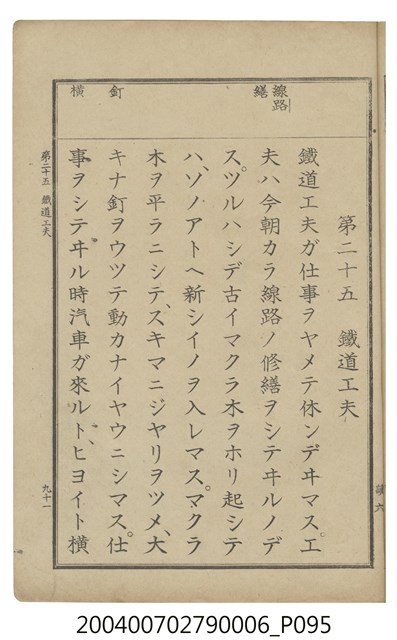 線路
繕
釘
横
第二十五 鐵道工夫
鐵道工夫ガ仕事ヲヤメテ休ンデヰマス。工
夫ハ今朝カラ線路ノ修繕ヲシテヰルノデ
ス。ツルハシデ古イマクラ木ヲホリ起シテ
ハ、ソノアトヘ新シイノヲ入レマス。マクラ
木ヲ平ラニシテ、スキマニジヤリヲツメ、大
キナ釘ヲウツテ動カナイヤウニシマス。仕
事ヲシテヰル時汽車ガ來ルト、ヒヨイト横
第二十五 鐵道工夫
九十一
讀六
200400702790006_P095